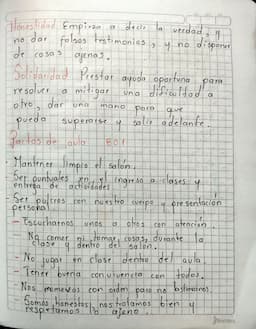 Honestidad Empiezo a decir la verdad, y
no dar falsos testimonios, y no disponer
de cosas ajenas.
Solidaridad Prestar ayuda oportuna para
resolver o mitigar una dificultad a
otro, dar una mano para que
pueda superarse y salir adelante.
Pactos de aula 801
- Mantener limpio el salón.
- Ser puntuales en el ingreso a clases y
entrega de actividades
- Ser pulcros con nuestro cuerpo y presentación
personal
- Escucharnos unos a otros con atención.
- No comer ni tomar cosas durante la
clase y dentro de salón.
- No jugar en clase dentro del aula.
- Tener buena convivencia con todos.
- Nos con para no
- Somos honestos, nos tratamos bien y
respetamos lo ajeno.